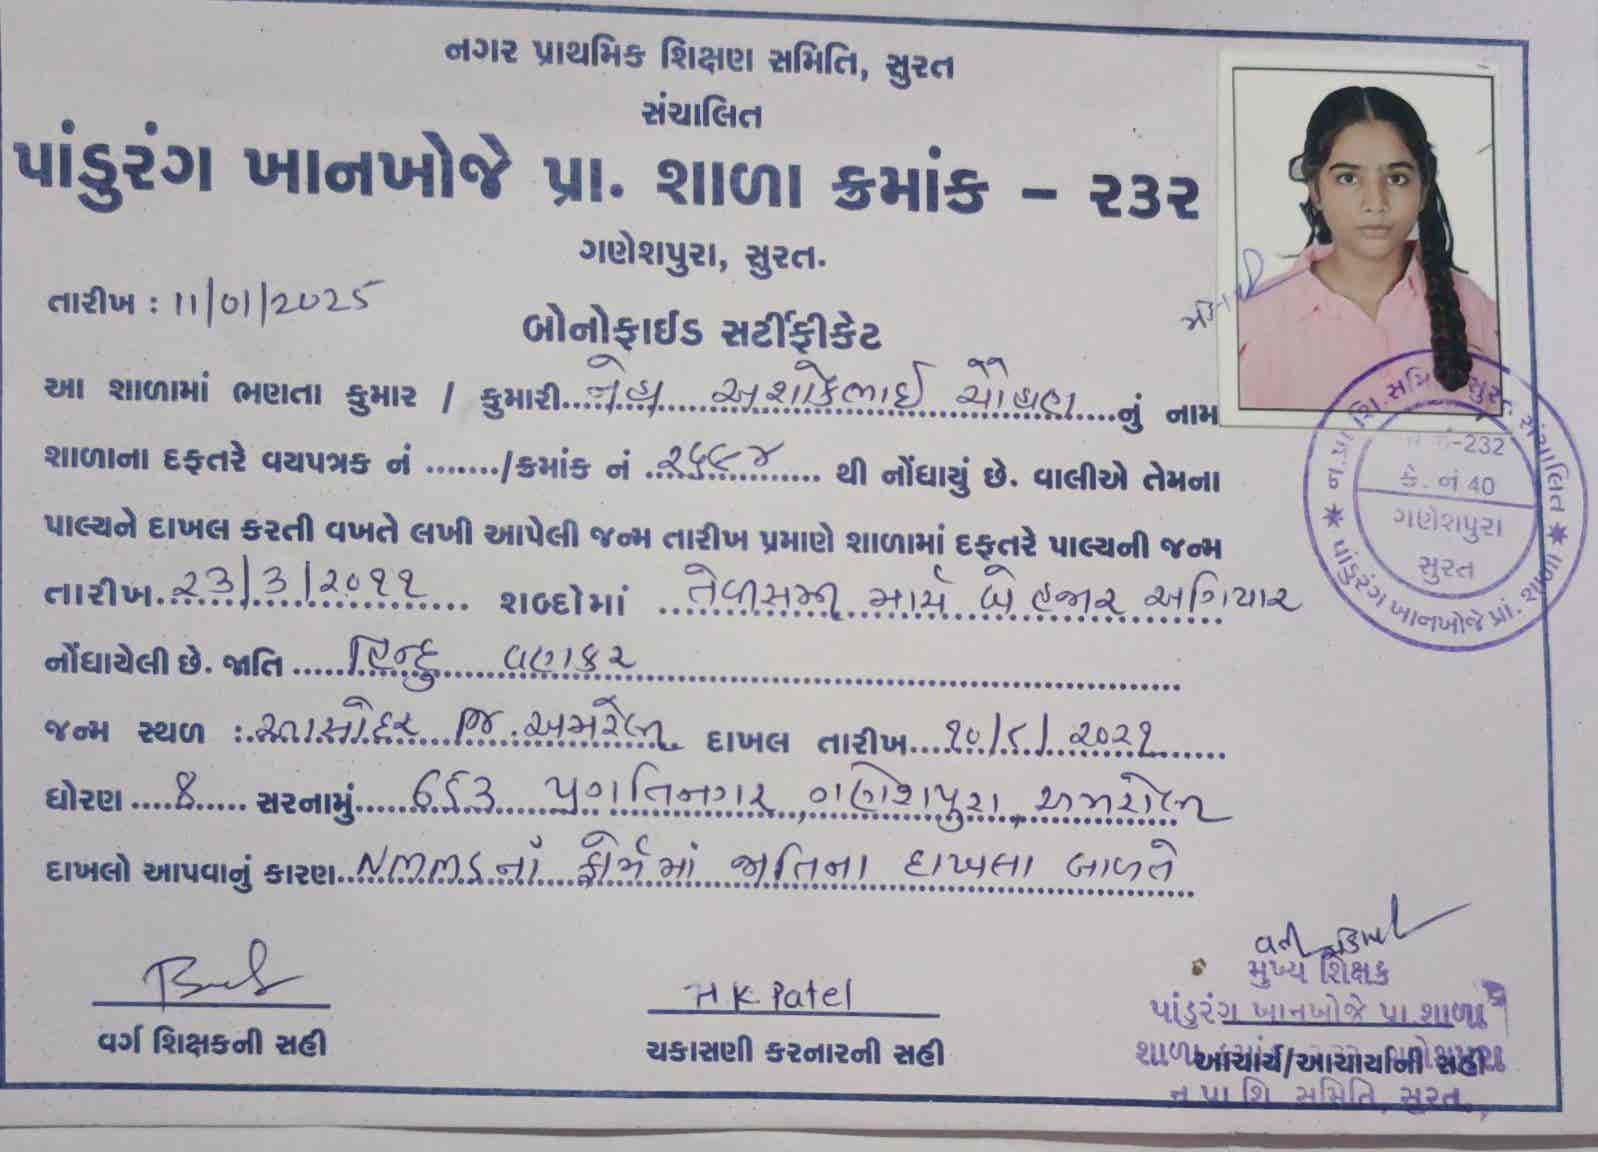 નગર પ્રાથમિક શિક્ષણ સમિતિ, સુરત
સંચાલિત
પાંડુરંગ ખાનખોજે પ્રા. શાળા ક્રમાંક – ૨૩૨
ગણેશપુરા, સુરત.
તારીખ : 11/01/2025
બોનોફાઈડ સર્ટીફીકેટ
આ શાળામાં ભણતા કુમાર / કુમારી નેહા અશોકભાઈ ચૌહાણ નું નામ
શાળાના દફતરે વયપત્રક નં ......./ક્રમાંક નં ૨૬૯૪ થી નોંધાયું છે. વાલીએ તેમના
પાલ્યને દાખલ કરતી વખતે લખી આપેલી જન્મ તારીખ પ્રમાણે શાળામાં દફતરે પાલ્યની જન્મ
તારીખ ૨૩/3/૨૦૧૧ શબ્દોમાં તેવીસમી માર્ચ બે હજાર અગિયાર
નોંધાયેલી છે. જાતિ હિન્દુ વણકર
જન્મ સ્થળ : જિ. અમરેલી દાખલ તારીખ
ધોરણ 8 સરનામું પ્રગતિનગર, ગણેશપુરા, અમરોલી
દાખલો આપવાનું કારણ ફોર્મમાં જાતિના દાખલા બાબતે
વર્ગ શિક્ષકની સહી
H K Patel
ચકાસણી કરનારની સહી
મુખ્ય શિક્ષક
પાંડુરંગ ખાનખોજે પ્રા શાળા
આચાર્ય/આચાર્યાની સહી
ન પ્રા શિ સમિતિ, સુરત.
ન.પ્રા.શિ.સમિતિ સુરત સંચાલિત
232
કે. નં 40
ગણેશપુરા
સુરત
પાંડુરંગ ખાનખોજે પ્રા. શાળા